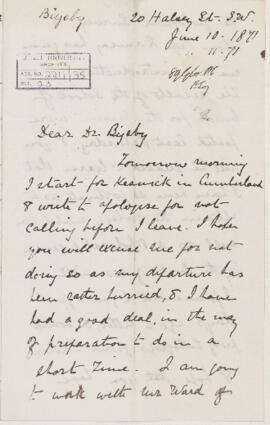 Bigsby
20 Halsey St. S.W.
June 10. 1871
11. 71
UNIVERSITY
ARCHIVES
ACC. NO. 35
Dear Dr Bigsby
Tomorrow morning
I start for Keswick in Cumberland
& write to apologise for not
calling before I leave. I hope
you will excuse me for not
doing so as my departure has
been rather hurried, & I have
had a good deal, in the way
of preparation to do in a
short time. I am going
to work with Mr Ward of